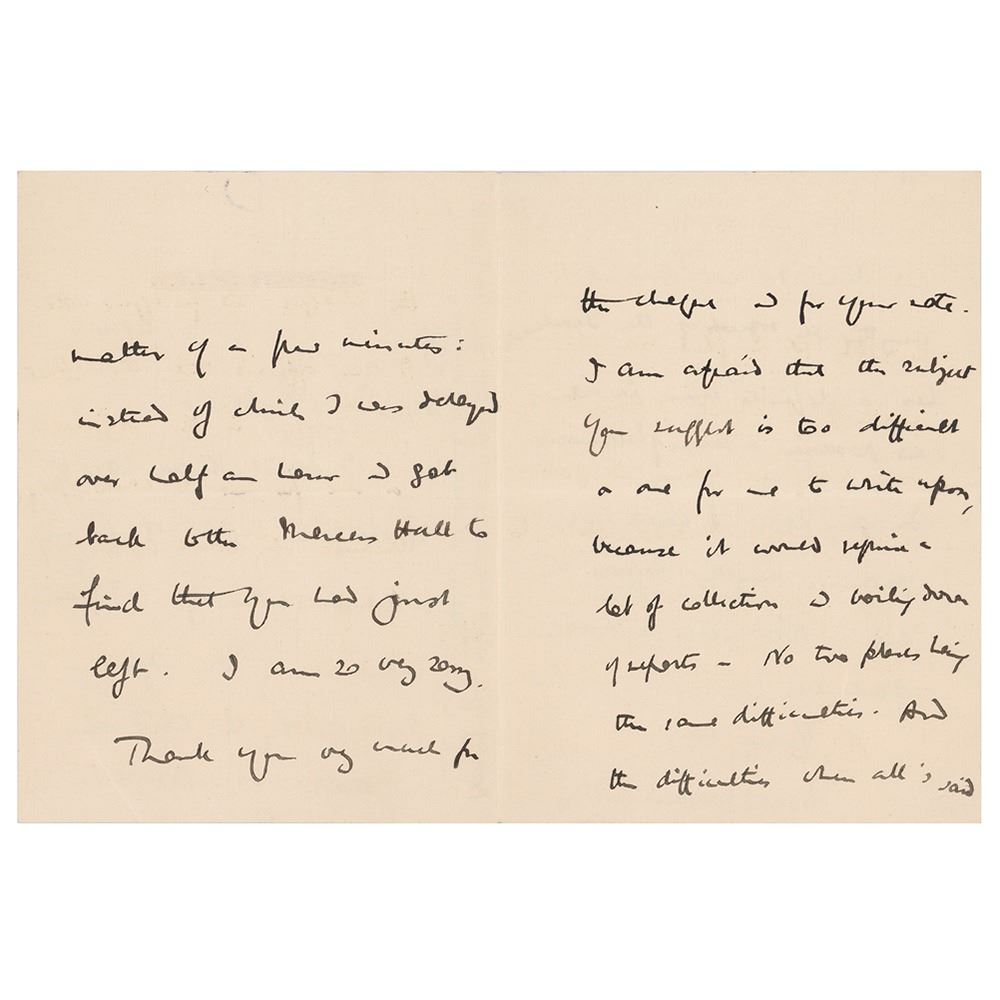 matter of a few minutes:
instead of which I was delayed
over half an hour & got
back to the Mercers Hall to
find that you had just
left. I am so very sorry.
Thank you very much for
the cheque & for your note.
I am afraid that the subject
you suggest is too difficult
a one for me to write upon,
because it would require a
lot of collection & boiling down
of reports – No two places being
the same difficulties. And
the difficulties when all's said